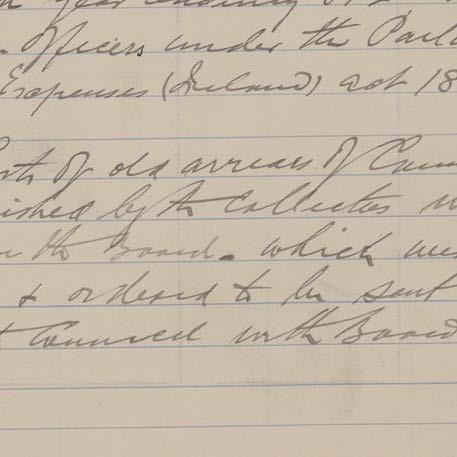 year ending 31st
Officers under the Parl
Expenses (Ireland) act 18
of old arrears of Coun
ished by the Collectors w
the Board - which wer
& ordered to be sent
Council with Board